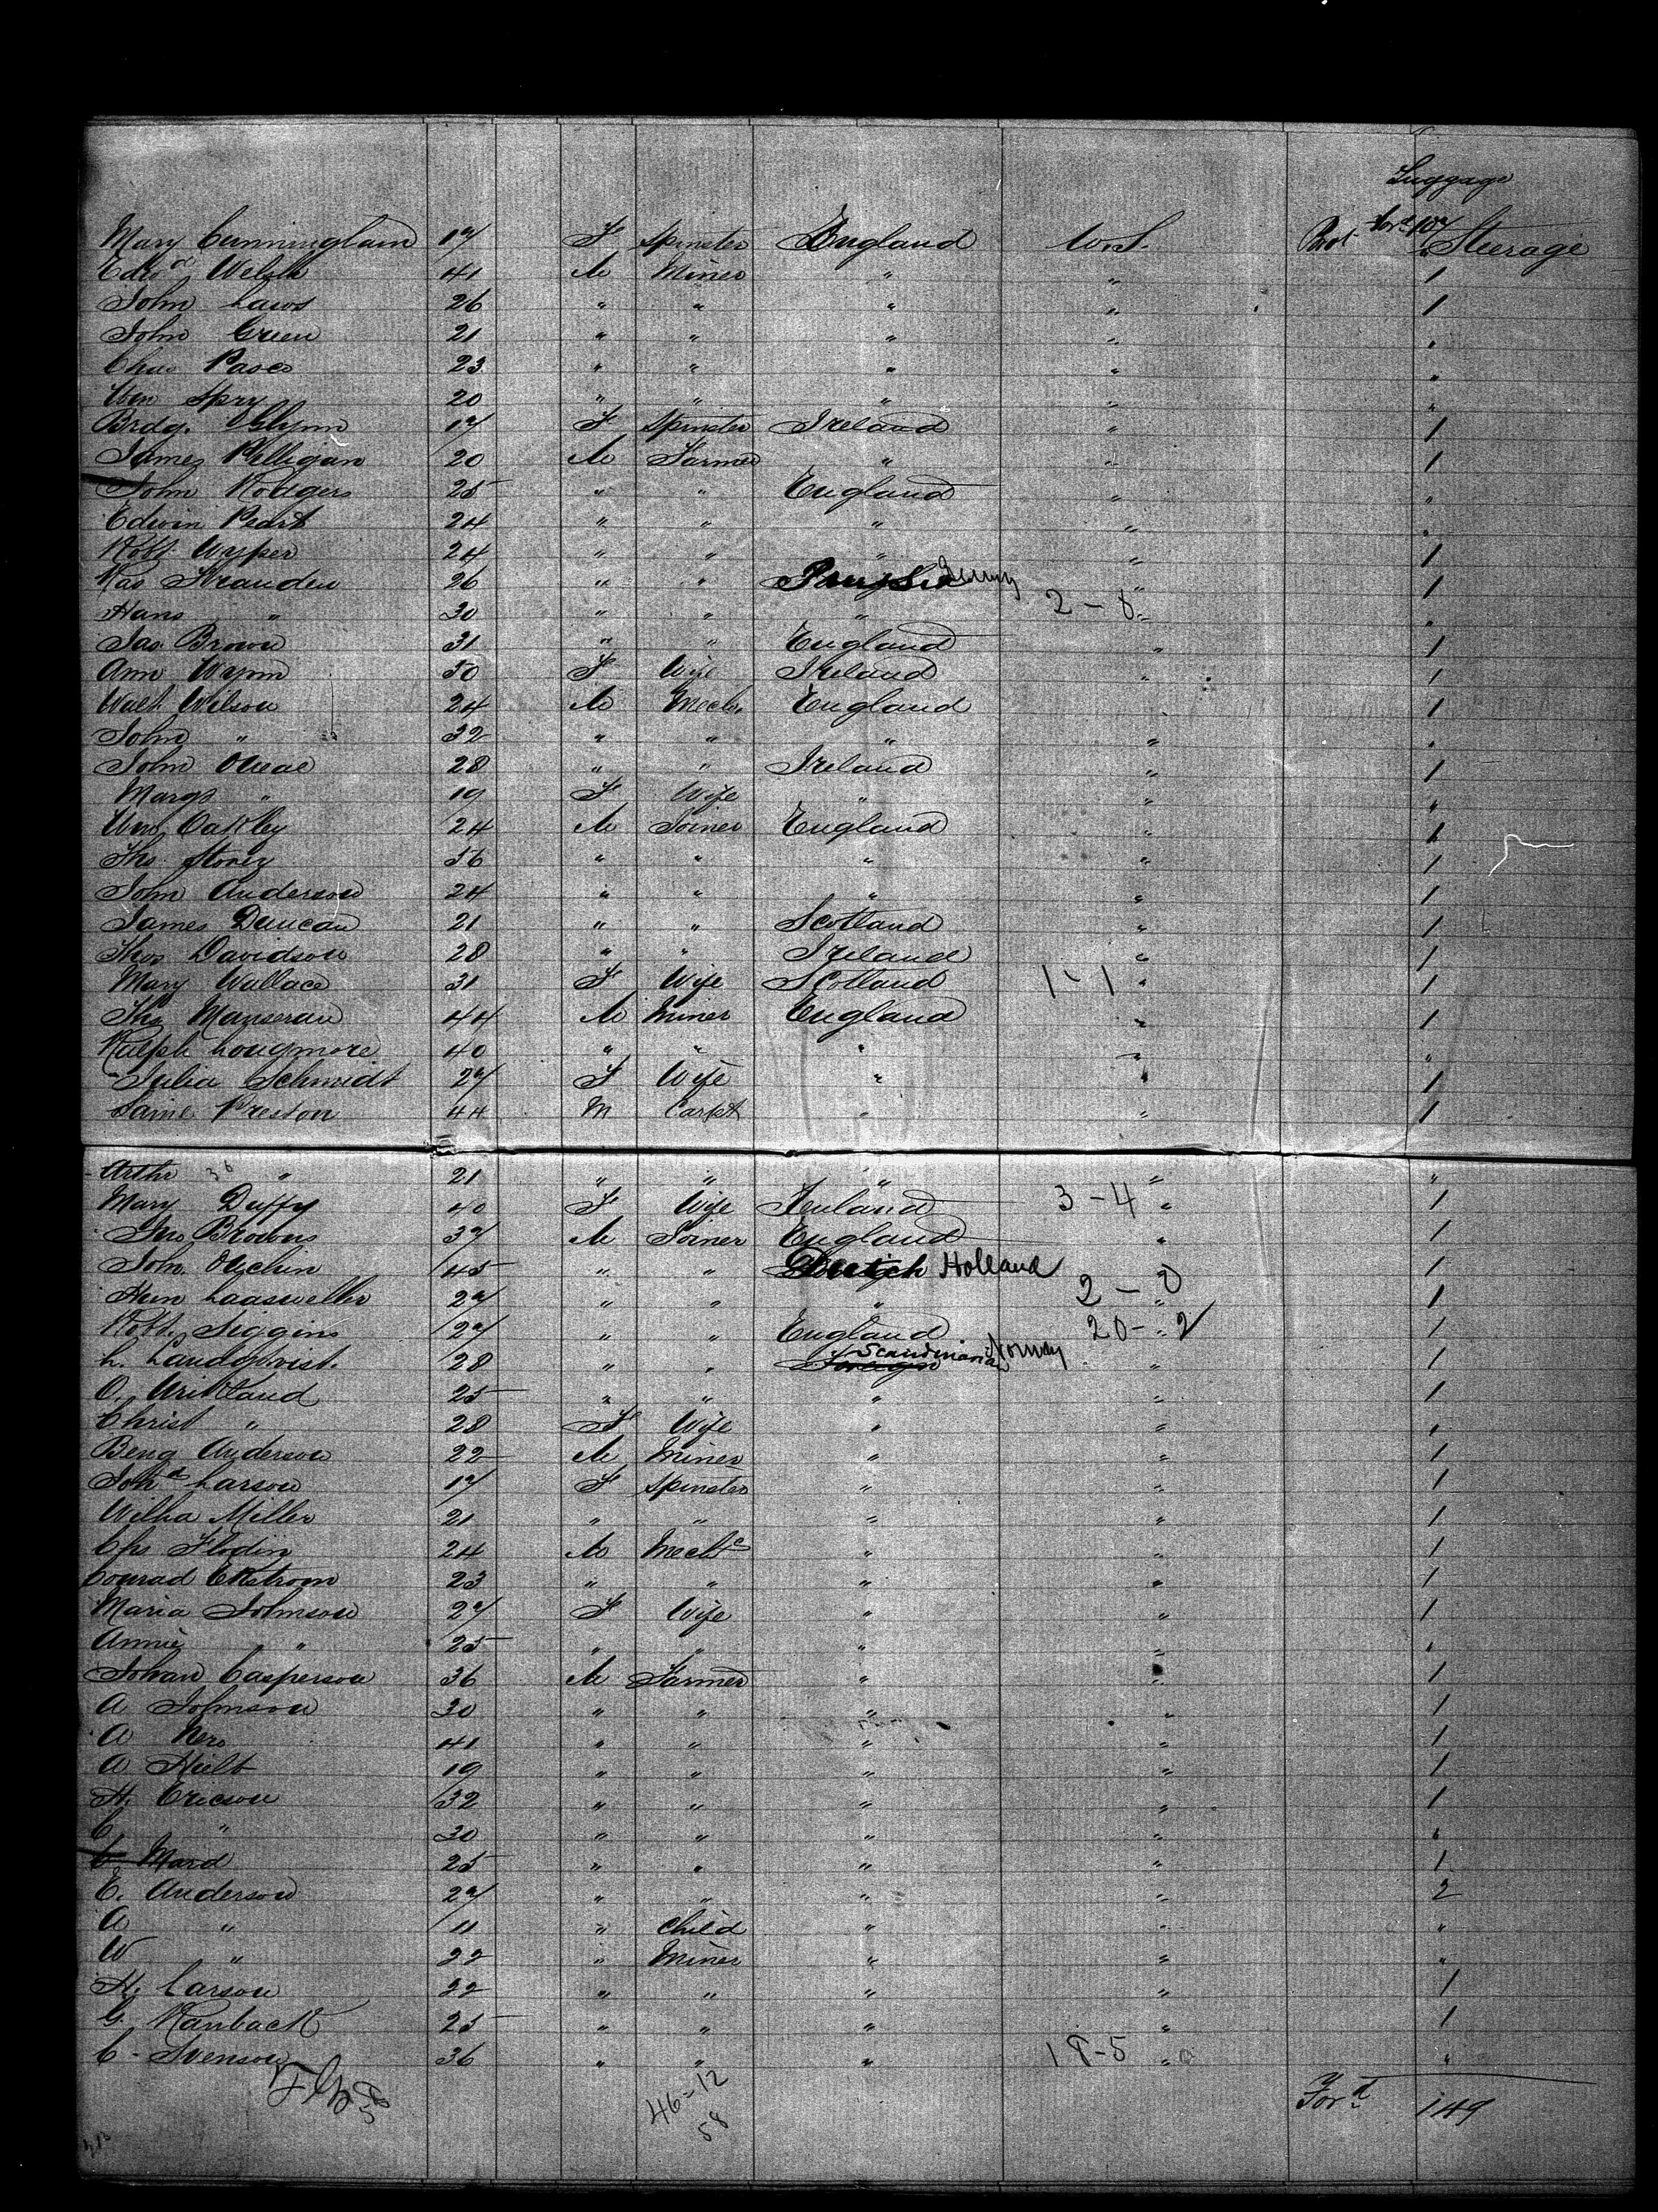 Luggage
Ford 107
Mary Cunningham 17 F Spinster England U.S. Steerage
Edwd Welsh 41 M Miner " " 1
John Laws 26 " " " " 1
John Green 21 " " " " "
Chas Pasco 23 " " " " "
Wm Spry 20 " " " " "
Brdg. Glynn 17 F Spinster Ireland " 1
James Milligan 20 M Farmer " " 1
John Rodgers 25 " " England " "
Edwin Peart 24 " " " " "
Robt Wyper 24 " " " " 1
26 " " Germy " 1
Hans " 30 " " " 2-8 " "
Jas. Brown 31 " " England " 1
Ann Wynn 50 F Wife Ireland " 1
Walt Wilson 24 M Mech. England 1
John " 32 " " " " "
John ONeal 28 " " Ireland " 1
Margt " 19 F Wife " " "
Wm Oakley 24 M Joiner England " 1
Tho Storey 56 " " " " 1
John Anderson 24 " " " " 1
James Duncan 21 " " Scotland " 1
Thos Davidson 28 " " Ireland " 1
Mary Wallace 31 F Wife Scotland 1-1 " 1
Tho 44 M Miner England " 1
Ralph Longmore 40 " " " " "
Julia Schmidt 27 F Wife " " 1
Saml Preston 44 M Carpt " " 1
Arthr 36 " 21 " " " " "
Mary Duffy 40 F Wife Ireland 3-4 " 1
Jno Browns 37 M Joiner England " 1
John 45 " " Dutch Holland 1
27 " " " 2-0 " 1
Robt. Siggins 27 " " England 20-2 " 1
L. Landqvist. 28 " " Foreign Scandinavian Norway " 1
O. 25 " " " " 1
Christ " 28 F Wife " " "
Beng Anderson 22 M Miner " " 1
Johа Larson 17 F Spinster " " 1
Wilha Miller 21 " " " " 1
Chs Flodin 24 M Mechc " " 1
Conrad Ekstrom 23 " " " " 1
Maria Johnson 27 F Wife " " 1
Annie " 25 " " " " "
Johan Casperson 36 M Farmer " " 1
A Johnson 30 " " " " 1
A Nero 41 " " " " 1
A Hult 19 " " " " 1
H. Ericson 32 " " " " 1
C " 30 " " " " "
C Mard 25 " " " " 1
E. Anderson 27 " " " " 2
A " 11 " Child " " "
W " 22 " Miner " " "
H. Carson 22 " " " " 1
G. Ranback 25 " " " " 1
C - Svenson 36 " " " 18-5 " "
46=12
58
Ford 149